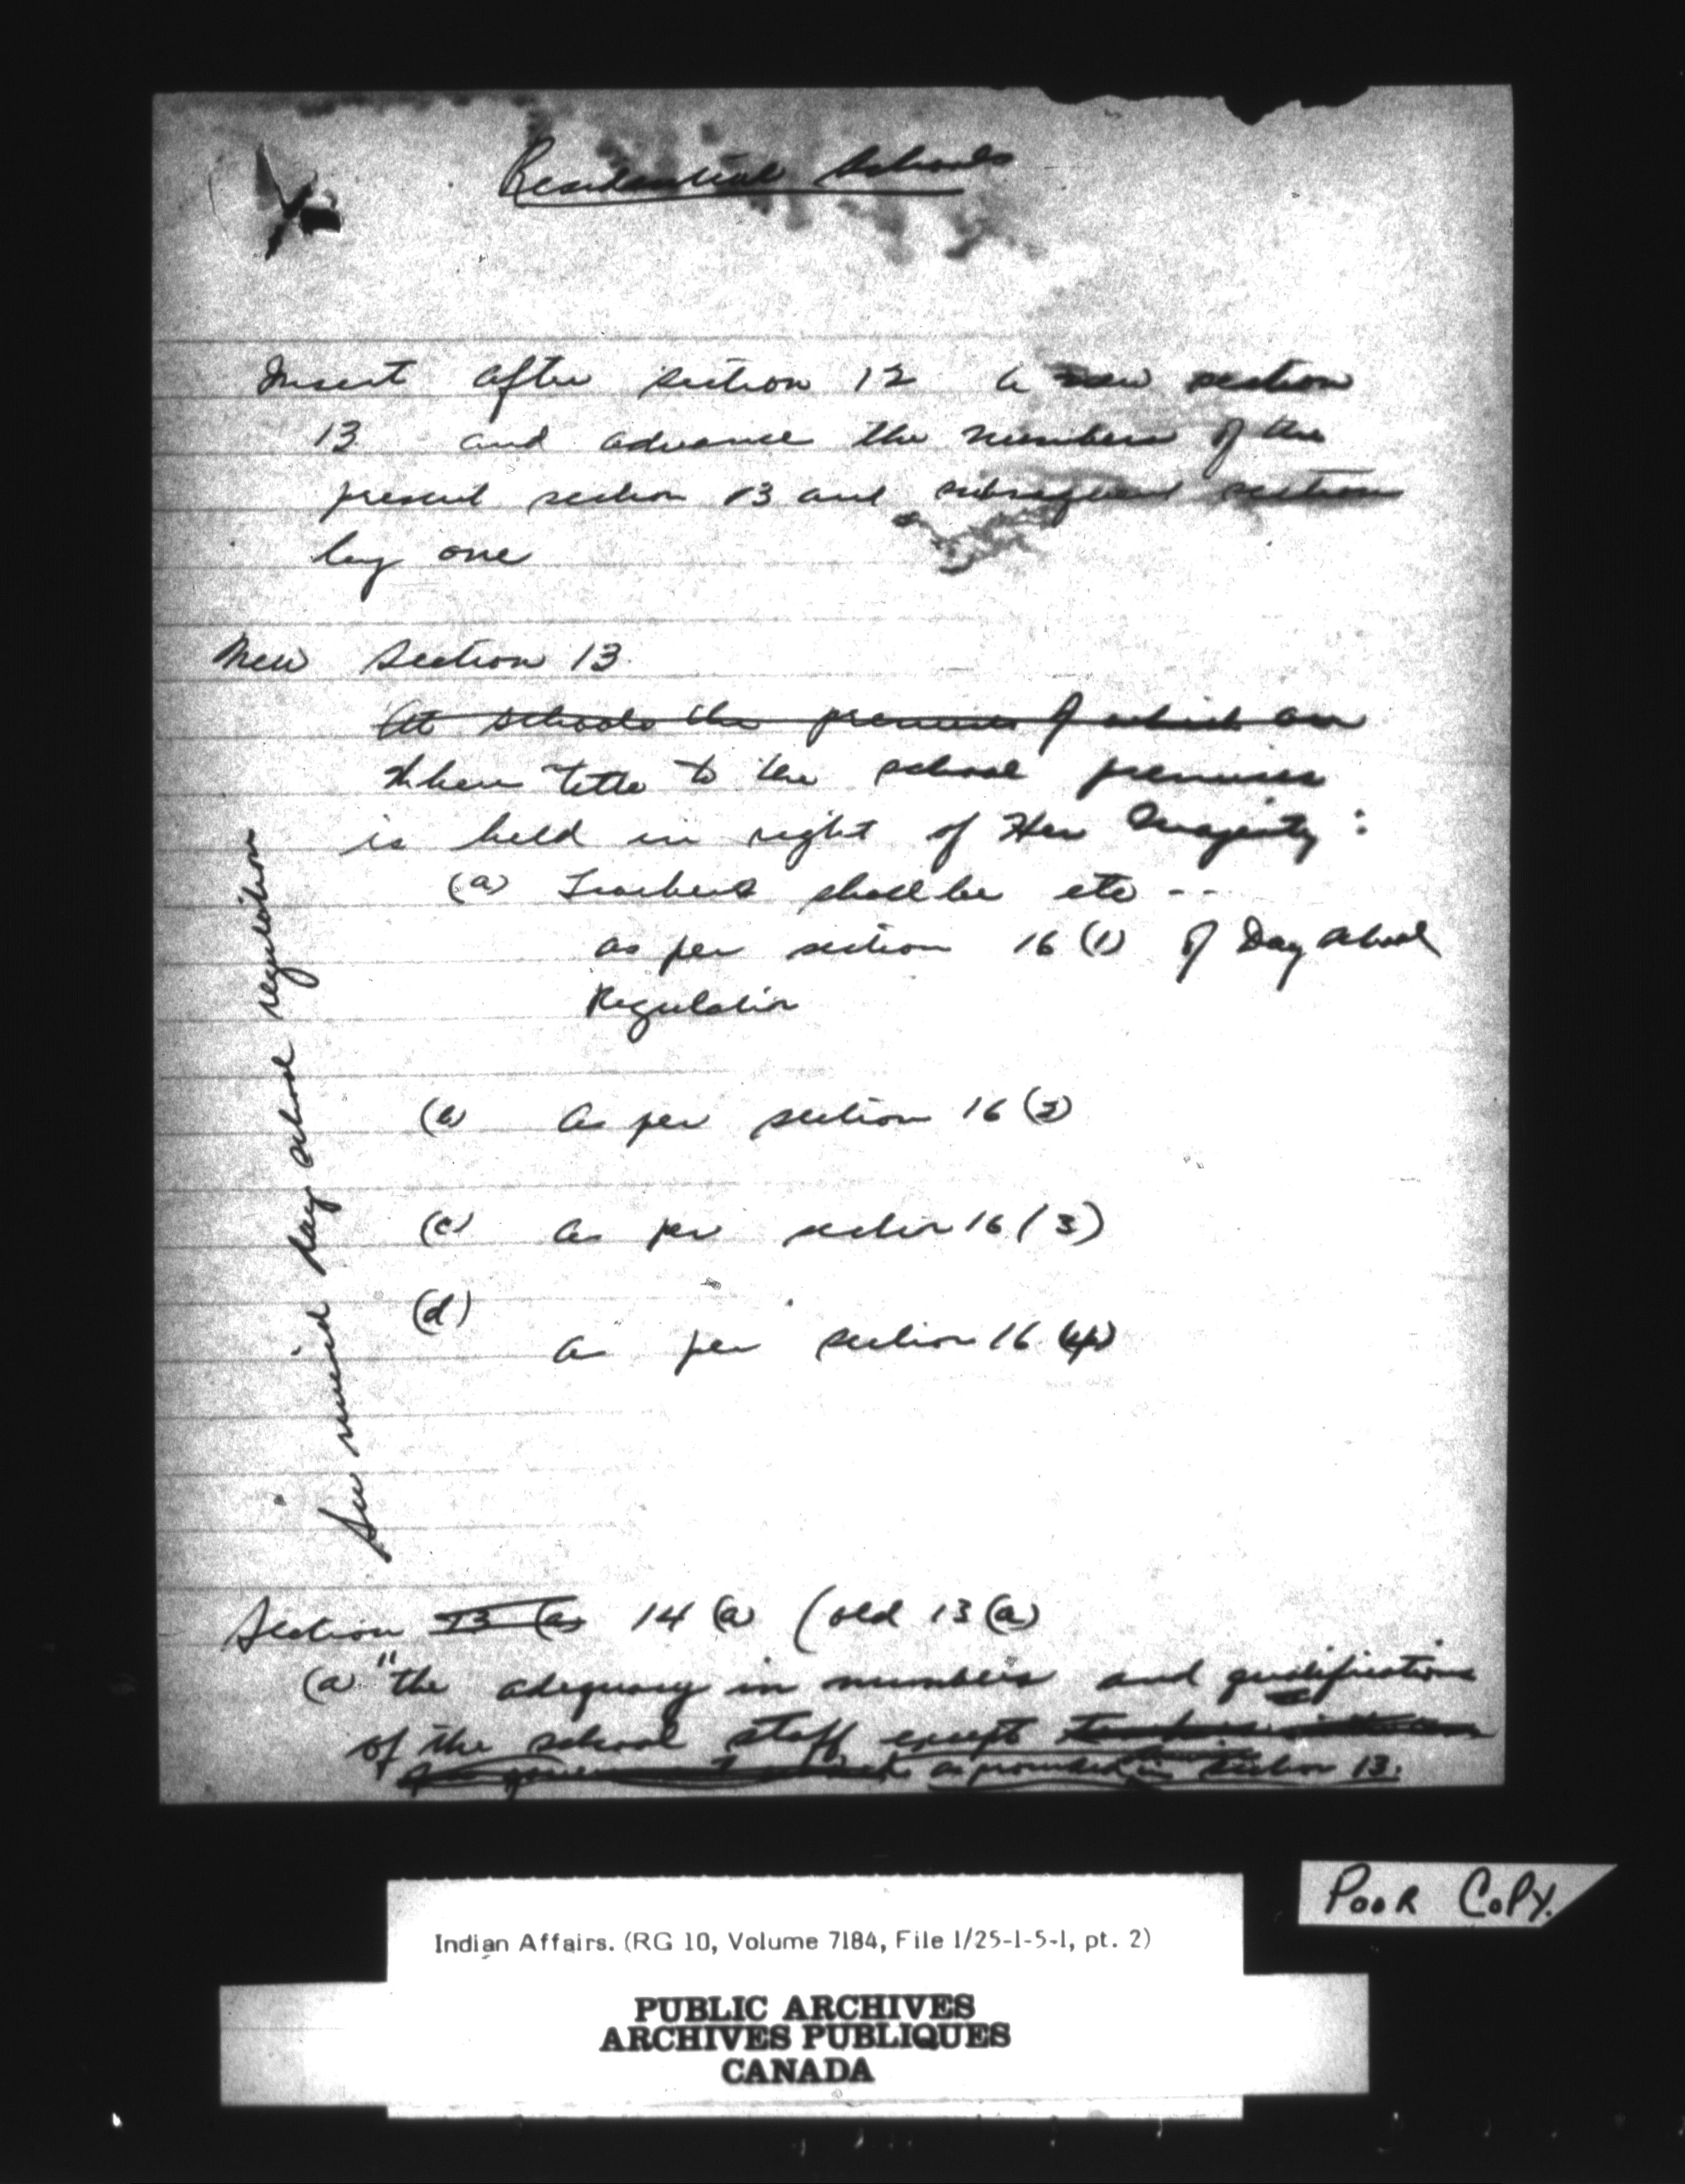 Residential Schools
Insert after section 12 a new section
13 and advance the numbers of the
present section 13 and subsequent sections
by one
New Section 13
At schools the premises of which are
Where title to the school premises
is held in right of Her Majesty :
(a) Teachers shall be etc --
as per section 16 (1) of Day School
Regulation
(b) As per section 16 (2)
(c) As per section 16 (3)
(d)
As per section 16 (4)
See revised day school regulation
Section 13 (a) 14 (a) (old 13 (a)
(a) "the adequacy in numbers and qualifications
of the school staff except
as provided in section 13.
Indian Affairs. (RG 10, Volume 7184, File 1/25-1-5-1, pt. 2)
POOR COPY.
PUBLIC ARCHIVES
ARCHIVES PUBLIQUES
CANADA